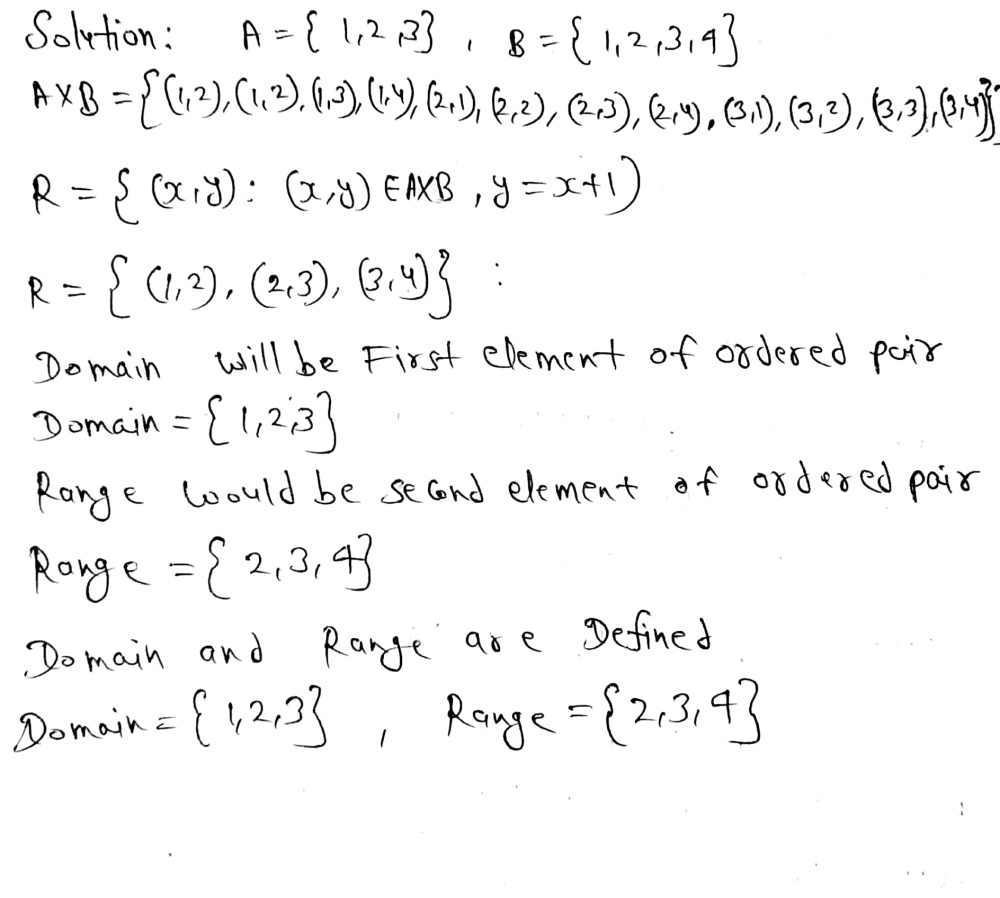 Solution: A = { 1,2,3} , B = { 1,2,3,4}
A×B = {(1,2),(1,2),(1,3),(1,4),(2,1),(2,2),(2,3),(2,4),(3,1),(3,2),(3,3),(3,4)}
R = { (x,y): (x,y) ∈ A×B , y = x+1)
R = { (1,2), (2,3), (3,4)} :
Domain will be First element of ordered pair
Domain = { 1,2,3}
Range would be second element of ordered pair
Range = { 2,3,4}
Domain and Range are Defined
Domain = { 1,2,3} , Range = { 2,3,4}